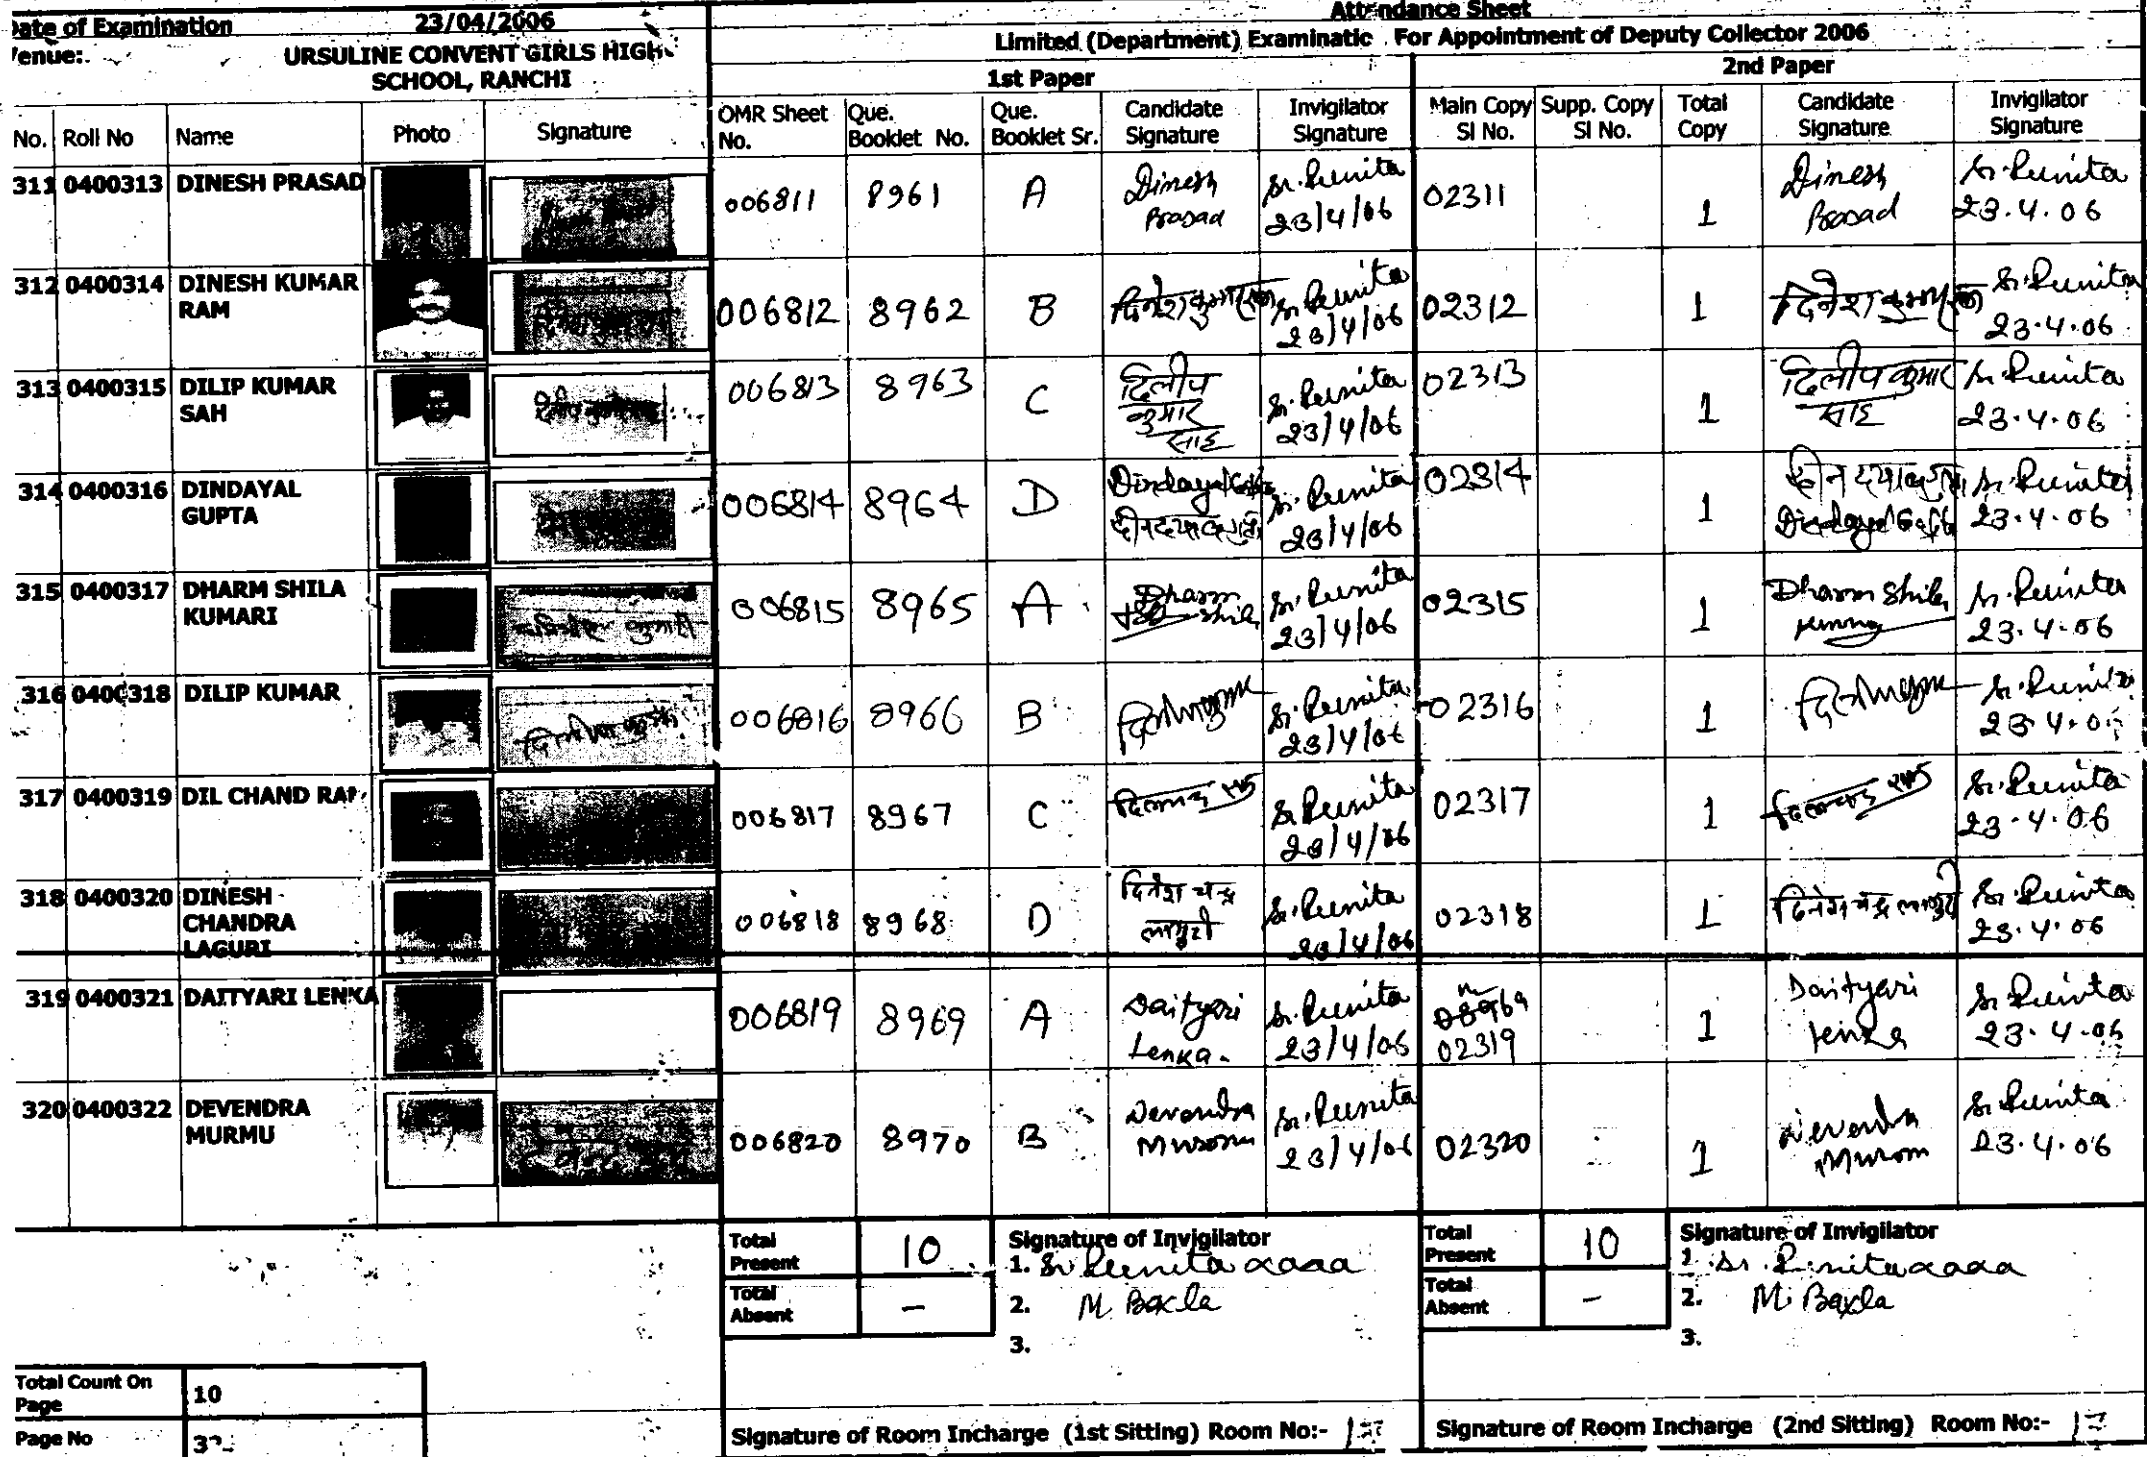 Date of Examination 23/04/2006
Venue: URSULINE CONVENT GIRLS HIGH SCHOOL, RANCHI
Attendance Sheet
Limited (Department) Examinatic For Appointment of Deputy Collector 2006
1st Paper 2nd Paper
No. Roll No Name Photo Signature OMR Sheet No. Que. Booklet No. Que. Booklet Sr. Candidate Signature Invigilator Signature Main Copy Sl No. Supp. Copy Sl No. Total Copy Candidate Signature Invigilator Signature
311 0400313 DINESH PRASAD 006811 8961 A Dinesh Prasad Sr. Punita 23/4/06 02311 1 Dinesh Prasad Sr. Punita 23.4.06
312 0400314 DINESH KUMAR RAM 006812 8962 B दिनेश कुमार राम Sr. Punita 23/4/06 02312 1 दिनेश कुमार राम Sr. Punita 23.4.06
313 0400315 DILIP KUMAR SAH 006813 8963 C दिलीप कुमार साह Sr. Punita 23/4/06 02313 1 दिलीप कुमार साह Sr. Punita 23.4.06
314 0400316 DINDAYAL GUPTA 006814 8964 D Dindayal Gupta दीनदयाल गुप्ता Sr. Punita 23/4/06 02314 1 दीनदयाल गुप्ता Dindayal Gupta Sr. Punita 23.4.06
315 0400317 DHARM SHILA KUMARI 006815 8965 A Dharm Shila Sr. Punita 23/4/06 02315 1 Dharm Shila Sr. Punita 23.4.06
316 0400318 DILIP KUMAR 006816 8966 B Sr. Punita 23/4/06 02316 1 Sr. Punita 23.4.06
317 0400319 DIL CHAND RAM 006817 8967 C Sr. Punita 23/4/06 02317 1 Sr. Punita 23.4.06
318 0400320 DINESH CHANDRA LAGURI 006818 8968 D दिनेश चन्द्र लागुरी Sr. Punita 23/4/06 02318 1 दिनेश चन्द्र लागुरी Sr. Punita 23.4.06
319 0400321 DAITYARI LENKA 006819 8969 A Daityari Lenka. Sr. Punita 23/4/06 08969 02319 1 Daityari Lenka Sr. Punita 23.4.06
320 0400322 DEVENDRA MURMU 006820 8970 B Devendra Murmu Sr. Punita 23/4/06 02320 1 Devendra Murmu Sr. Punita 23.4.06
Total Present 10 Signature of Invigilator Total Present 10 Signature of Invigilator
1. Sr Punita 1. Sr. Punita
Total Absent – 2. M. Baxla Total Absent – 2. M. Baxla
3. 3.
Total Count On Page 10
Page No
Signature of Room Incharge (1st Sitting) Room No:- 17 Signature of Room Incharge (2nd Sitting) Room No:- 17